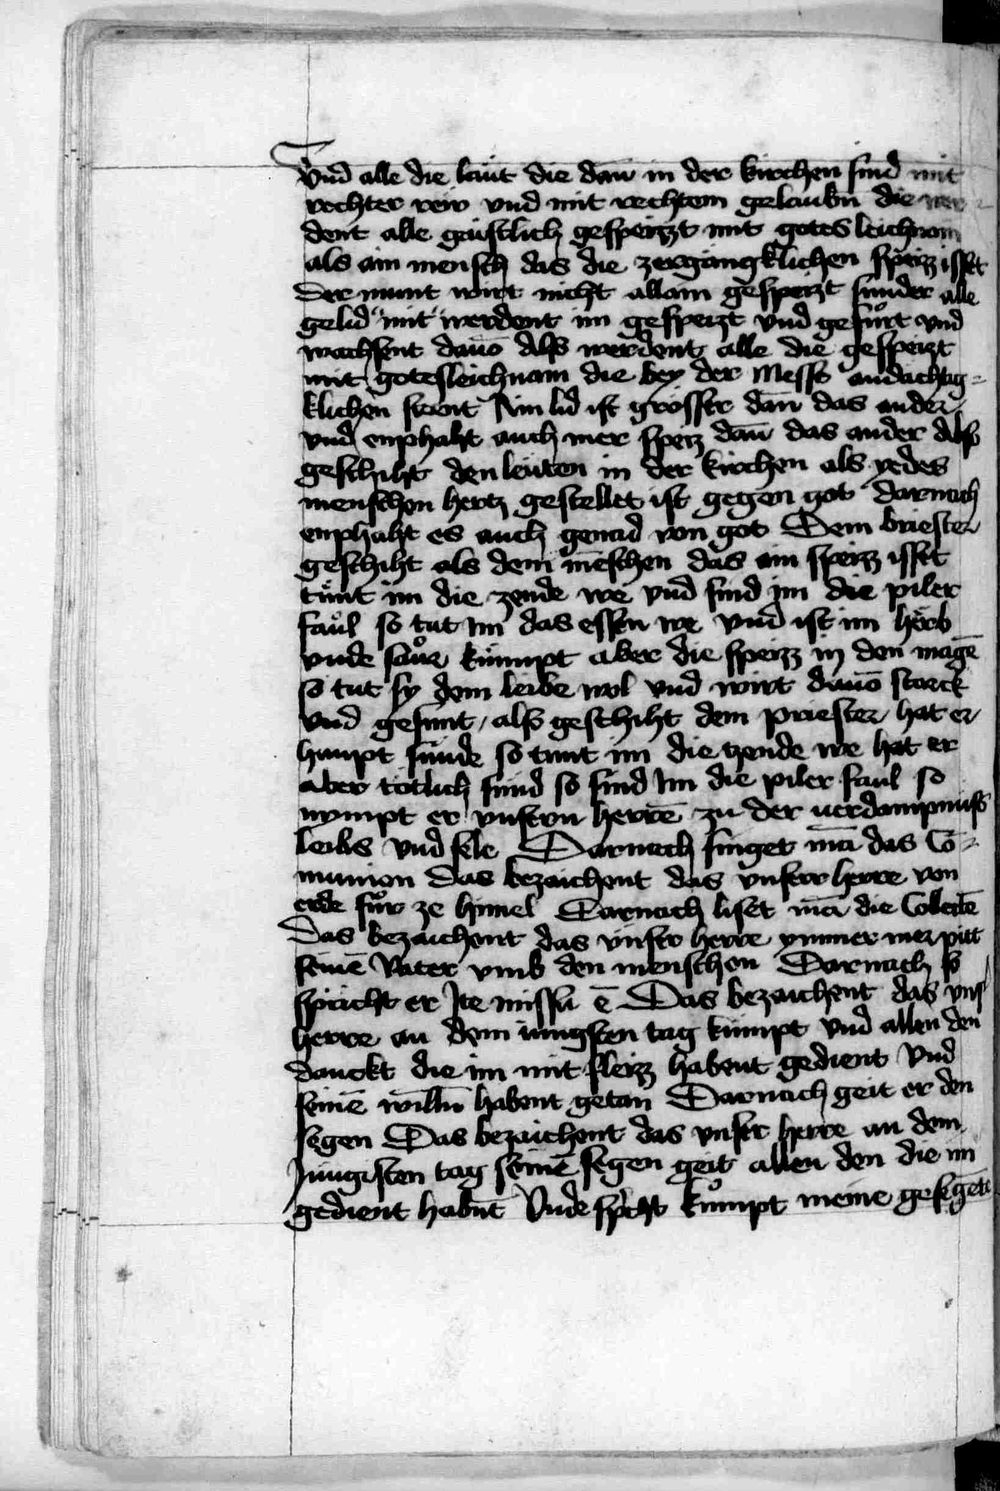 Vnd alle die laüt die dañ in der kirchen sind mit
rechter rew vnd mit rechtem gelaubñ die wer
dent alle gaistlich gespeiszt mit gotes leichnam
als ain mensch das die zergangklichen speizz isset
Der munt wirt nicht allain gespeizt sunder alle
gelid mit werdent im gespeizt vnd gefürt vnd
wachsent dauō Alß werdent alle die gespeizt
mit gotesleichnam die bey der Messe andachtig⸗
klichen stent Ain lid ist grosser dañ das ander
vnd enphaht auch mer speiz dañ das ander Alß
geschiht den leüten in der kirchen als yedes
menschen hertz gestellet ist gegen got darnach
enphaht es auch genad von got Dem briester
geschiht als dem mēschen das ain speizz isset
tünt im die zende we vnd sind im die piler
faul so tut im das essen we vnd ist im herb
vnde saur kümpt aber die speizz in den magē
so tut sy dem leibe wol vnd wirt dauō starck
vnd gesunt, alß geschiht dem priester hat er
haupt sünde so tunt im die tzende we hat er
aber tötlich sünd so sind Im die piler faul so
nympt er vnsern herrē zu der uerdampnüß
leibs vnd sele Darnach singet mā das Co⸗
munion Das bezaichent das vnserr herre von
erde für ze himel Darnach liset mā die Collectē
Das bezaichent das vnser herre ymmer mer pitt
seinē Vater vmb den menschen Darnach so
spricht er Ite missa ē Das bezaichent das vns
herre an dem iungsten tag kümpt vnd allen den
danckt die im mit fleizz habent gedient Vnd
seinē willñ habent getan Darnach geit er den
segen Das bezaichent das vnser herre an dem
Jüngisten tag seinē segen geit allen den die im
gedient habnt Vnde spricht kumpt meine gesegētē